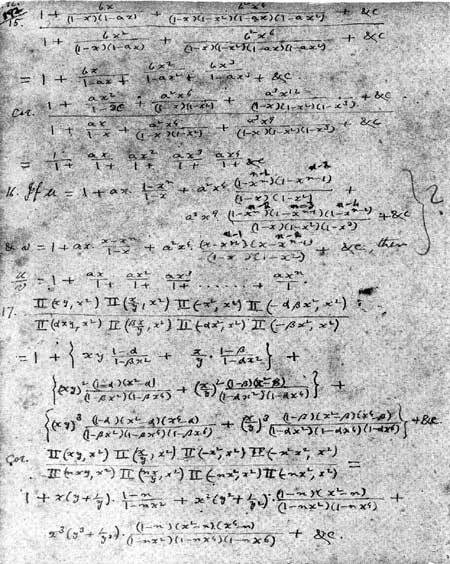 15. 1 + bx/((1-x)(1-ax)) + b²x⁴/((1-x)(1-x²)(1-ax)(1-ax²)) + &c
1 + bx²/((1-x)(1-ax)) + b²x⁶/((1-x)(1-x²)(1-ax)(1-ax²)) + &c
= 1 + bx/1-ax + bx²/1-ax² + bx³/1-ax³ + &c.
Cor. 1 + ax²/1-x + a²x⁶/(1-x)(1-x²) + a³x¹²/(1-x)(1-x²)(1-x³) + &c
1 + ax/1-x + a²x⁴/(1-x)(1-x²) + a³x⁹/(1-x)(1-x²)(1-x³) + &c
= 1/1+ ax/1+ ax²/1+ ax³/1+ ax⁴/1+ &c
16. If u = 1 + ax · (1-xⁿ)/(1-x) + a²x⁴ (1-xⁿ⁻¹)(1-xⁿ⁻²)/(1-x)(1-x²) +
a³x⁹ · (1-xⁿ⁻²)(1-xⁿ⁻³)(1-xⁿ⁻⁴)/(1-x)(1-x²)(1-x³) + &c } ?
& v = 1 + ax · (x-xⁿ)/(1-x) + a²x⁴ · /(1-x)(1-x²) + &c, then
u/v = 1 + ax/1+ ax²/1+ ax³/1+ ...... + axⁿ/1.
17. Π(xy, x²) Π(x/y, x²) Π(-x², x²) Π(-αβx², x²) :
Π(αxy, x²) Π(βx/y, x²) Π(-αx², x²) Π(-βx², x²)
= 1 + {xy (1-α)/(1-βx²) + x/y · (1-β)/(1-αx²)} +
{(xy)² (1-α)(x²-α)/(1-βx²)(1-βx⁴) + (x/y)² (1-β)(x²-β)/(1-αx²)(1-αx⁴)} +
{(xy)³ (1-α)(x²-α)(x⁴-α)/(1-βx²)(1-βx⁴)(1-βx⁶) + (x/y)³ (1-β)(x²-β)(x⁴-β)/(1-αx²)(1-αx⁴)(1-αx⁶)} + &c.
Cor. Π(xy, x²) Π(x/y, x²) Π(-x², x²) Π(-n²x², x²)
Π(nxy, x²) Π(nx/y, x²) Π(-nx², x²) Π(-nx², x²) =
1 + x(y+1/y) · (1-n)/(1-nx²) + x²(y²+1/y²) · (1-n)(x²-n)/(1-nx²)(1-nx⁴) +
x³(y³+1/y³) · (1-n)(x²-n)(x⁴-n)/(1-nx²)(1-nx⁴)(1-nx⁶) + &c.